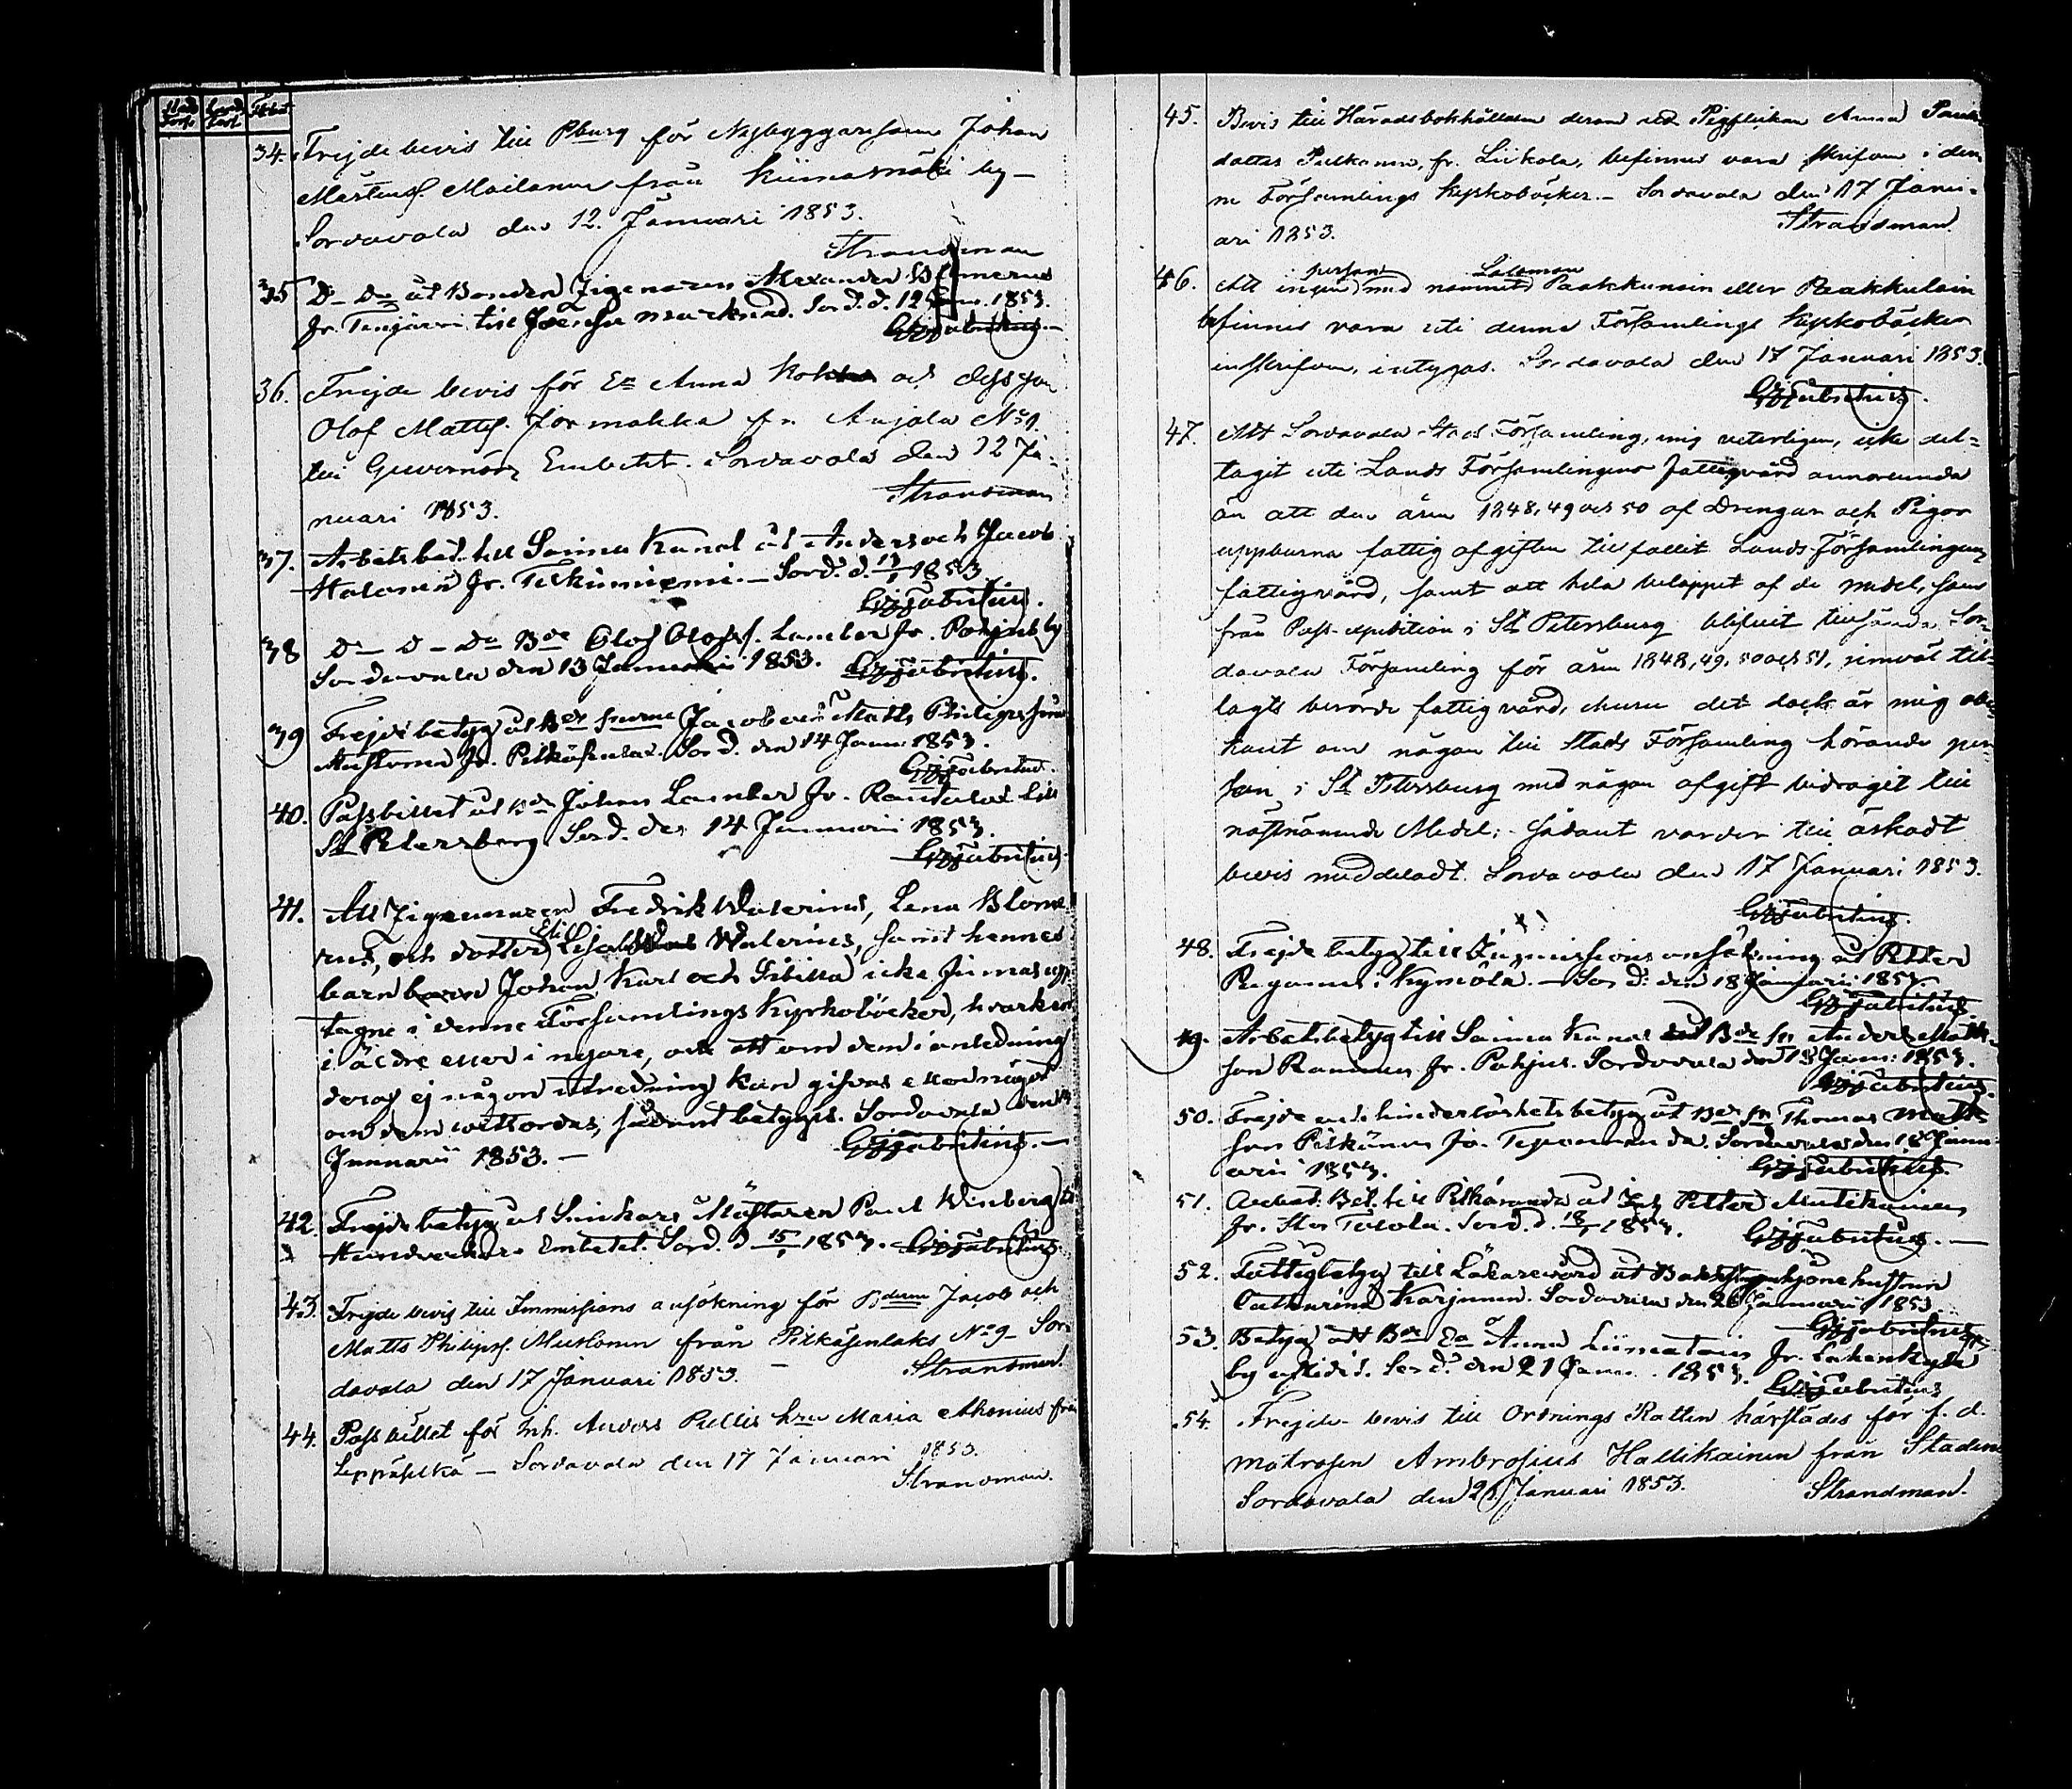 34. Frejdebevis till Pburg för Nybyggaresonen Johan
Mårtenss. Mailanen från Kiimamäki by –
Sordavala den 12. Januari 1853.
Strandman
35 Do Do åt Bonden Zigenaren Alexander
fr. till Joensu marknad. Sord. d. 12 Jan. 1853.
GJFabritius. –
36. Frejde bevis för Ea Anna och dess son
Olof Mattss. Jormakka fr. Anjala No 1.
till Guvernörs Embetet. Sordavala den 12 Ja-
nuari 1853. Strandman
37. Arbetsbet. till Saima Kanal åt Anders och Jacob
Halonen fr. Tuksinniemi. – Sord. d. 13/1 1853
GJFabritius.
38 Do – D – Do Bde Olof Olofss. Lamber fr. Pohjus by
Sordavala den 13 Januari 1853. GJFabritius.
39 Frejdebetyg åt Bde sönerne Jacob och Matts Philipssöner
Mustonen fr. Pitkäsenlax. Sord. den 14 Janu: 1853.
GJFabritius.
40. Passbillet åt Bde Johan Lamber fr. Rantalax till
St Petersburg Sord. den 14 Januari 1853.
GJFabritius.
41. Att Zigenaren Fredrik Walerius, Lena Blome
rus, och dotter Walerius, samt hennes
barn Johan Karl och Sibilla icke finnas upp
tagne i denne Församlings Kyrkoböcker, hvarken
i äldre eller i nyare, och att om dem i anledning
deraf ej någon utredning kan gifvas eller något
om dem vittordas, sådant betygas. Sordavala den
Januarii 1853. – GJFabritius. –
42 Frejdebetyg åt Snickare Mästaren Paul Winberg til
Handverkare Embetet. Sord. d 15/1 1853. GJFabritius
43. Frejde bevis till Immissions ansökning för Bderne Jacob och
Matts Philipss. Mustonen från Pitkäsenlaks No 9 Sor-
davala den 17 Januari 1853. – Strandman.
44. Passbillet för Inh. Anders Pullis hru Maria Ahonius från
Leppäselkä – Sordavala den 17 Januari 1853.
Strandman.
45. Bevis till Häradsbokhållaren derom att Pigflickan Anna Pauls
dotter Pulkanen, fr. Liikola, befinnes vara skrifven i den
na Församlings Kyrkoböcker. – Sordavala den 17 Janu-
ari 1853. Strandman
46. Att ingen person med namnet Salomon Paakkunain eller Paakkulain
befinnes vara uti denna Församlings Kyrkoböcker
inskrifven, intygas. Sordavala den 17 Januari 1853.
GJFabritius.
47. Att Sordavala Stads Församling, mig veterligen, icke del-
tagit uti Lands Församlingens fattigvård annorlunda
än att den åren 1848, 49 och 50 af Drengar och Pigor
uppburna fattig afgiften tillfallit Lands Församlingens
fattigvård, samt att hela beloppet af de medel, som
från Pass-expedition i St Petersburg blifvit tillsända Sor-
davala Församling för åren 1848, 49, 50 och 51, jemväl till-
lagts berörde fattigvård, churu det dock är mig obe-
kant om någon till Stads Församling hörande per-
son i St Petersburg med någon afgift bidragit till
nästnämnde Medel; sådant varder till äskadt
bevis meddeladt. Sordavala den 17 Januari 1853.
GJFabritius.
48. Frejde betyg till Immissions ansökning åt Petter
i Kymölä. – Sord: den 18 Januarii 1853.
GJFabritius
49. Arbetsbetyg till Saima Kanal åt Bde sn Anders Matts
son fr. Pohjus. Sordavala den 18 Janu: 1853.
GJFabritius.
50. Frejde och hinderlöshetsbetyg åt Bde sn Thomas Matts
son Pitkänen fr. Sordavala den 18 Janu-
arii 1853. GJFabritius.
51. Arbets Bet. till Pitkäranda åt Petter Mutikainen
fr. Stor Tolola. Sord. d. 18/1 1853. GJFabritius. –
52. Fattigbetyg till Läkarevård åt hustrun
Catharina Karjunen. Sordavala den 20 Januari 1853
GJFabritius
53. Betyg att Bde Ea Anna Liimatain fr. Lahenkylä
by aflidit. Sord. den 21 Janu. 1853. GJFabritius
54. Frejde-bevis till Ordnings Rätten härstädes för f.d.
matrosen Ambrosius Hallikainen från Staden
Sordavala den 21 Januari 1853. Strandman.